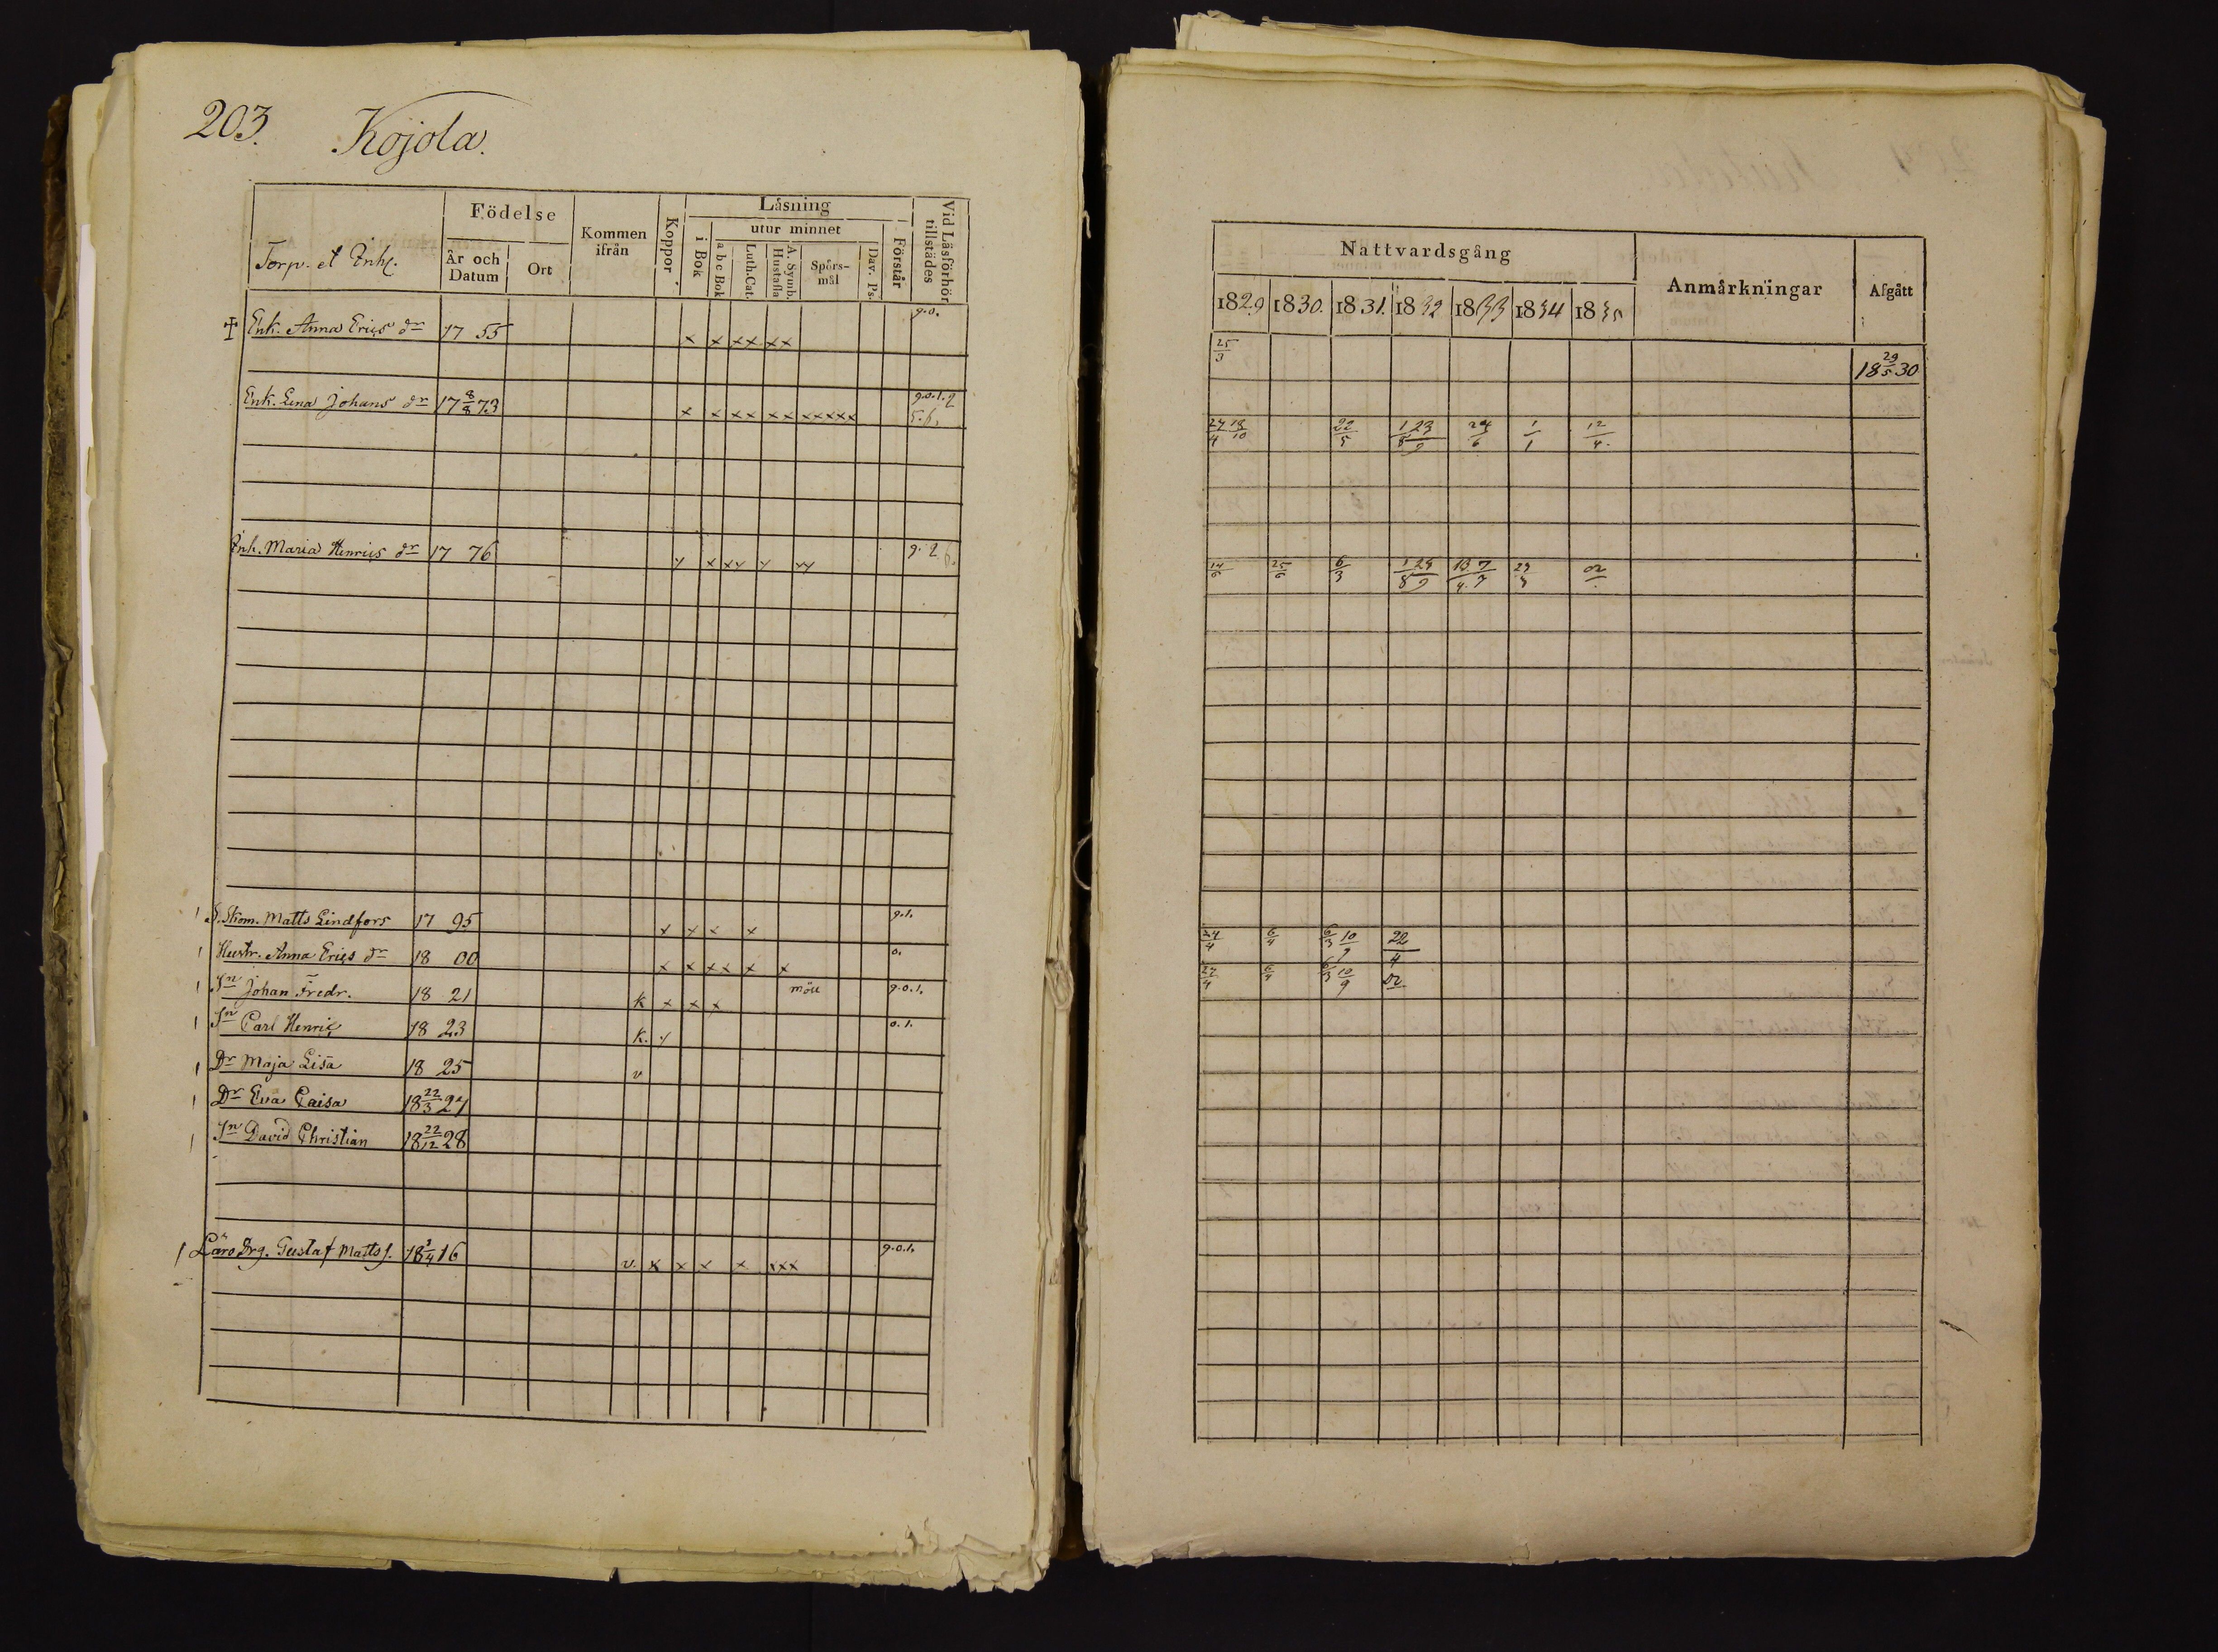 203. Kojola.
Torp. et Inh.
Födelse
År och Datum
Ort
Kommen ifrån
Koppor
Läsning
i Bok
utur minnet
a b c Bok
Luth. Cat.
A. Symb. Hustafla
Spörs-mål
Dav. Ps.
Förstår
Vid Läsförhör tillstädes
Enk. Anna Erics dr 17 55 x x xx xx 9.0.
Enk. Lena Johans dr 17 8/8 73 x x xx xx xxxxx 9.0.1.2 5.6.
Inh. Maria Henrics dr 17 76 9. 2 6.
S. Skom. Matts Lindfors 17 95 x x x x 9.1.
Hustr. Anna Erics dr 18 00 x x xx x x 0.
Sn Johan Fredr. 18 21 k x x x 9.0.1.
Sn Carl Henric 18 23 k. 0.1.
Dr Maja Lisa 18 25 v
Dr Eva Caisa 18 22/3 27
Sn David Christian 18 22/12 28
Läro Drg. Gustaf Matts s. 18 1/4 16 v. x x x x xxx 9.0.1.
Nattvardsgång
1829 1830. 1831. 1832 1833 1834 1835
Anmärkningar
Afgått
25/3 18 29/5 30
24/4 18/10 22/5 1/8 23/9 24/6 1/1 12/4.
14/6 25/6 6/3 1/8 23/9
24/4 6/4 6/3 10/9 22/4
24/4 6/4 6/3 10/9